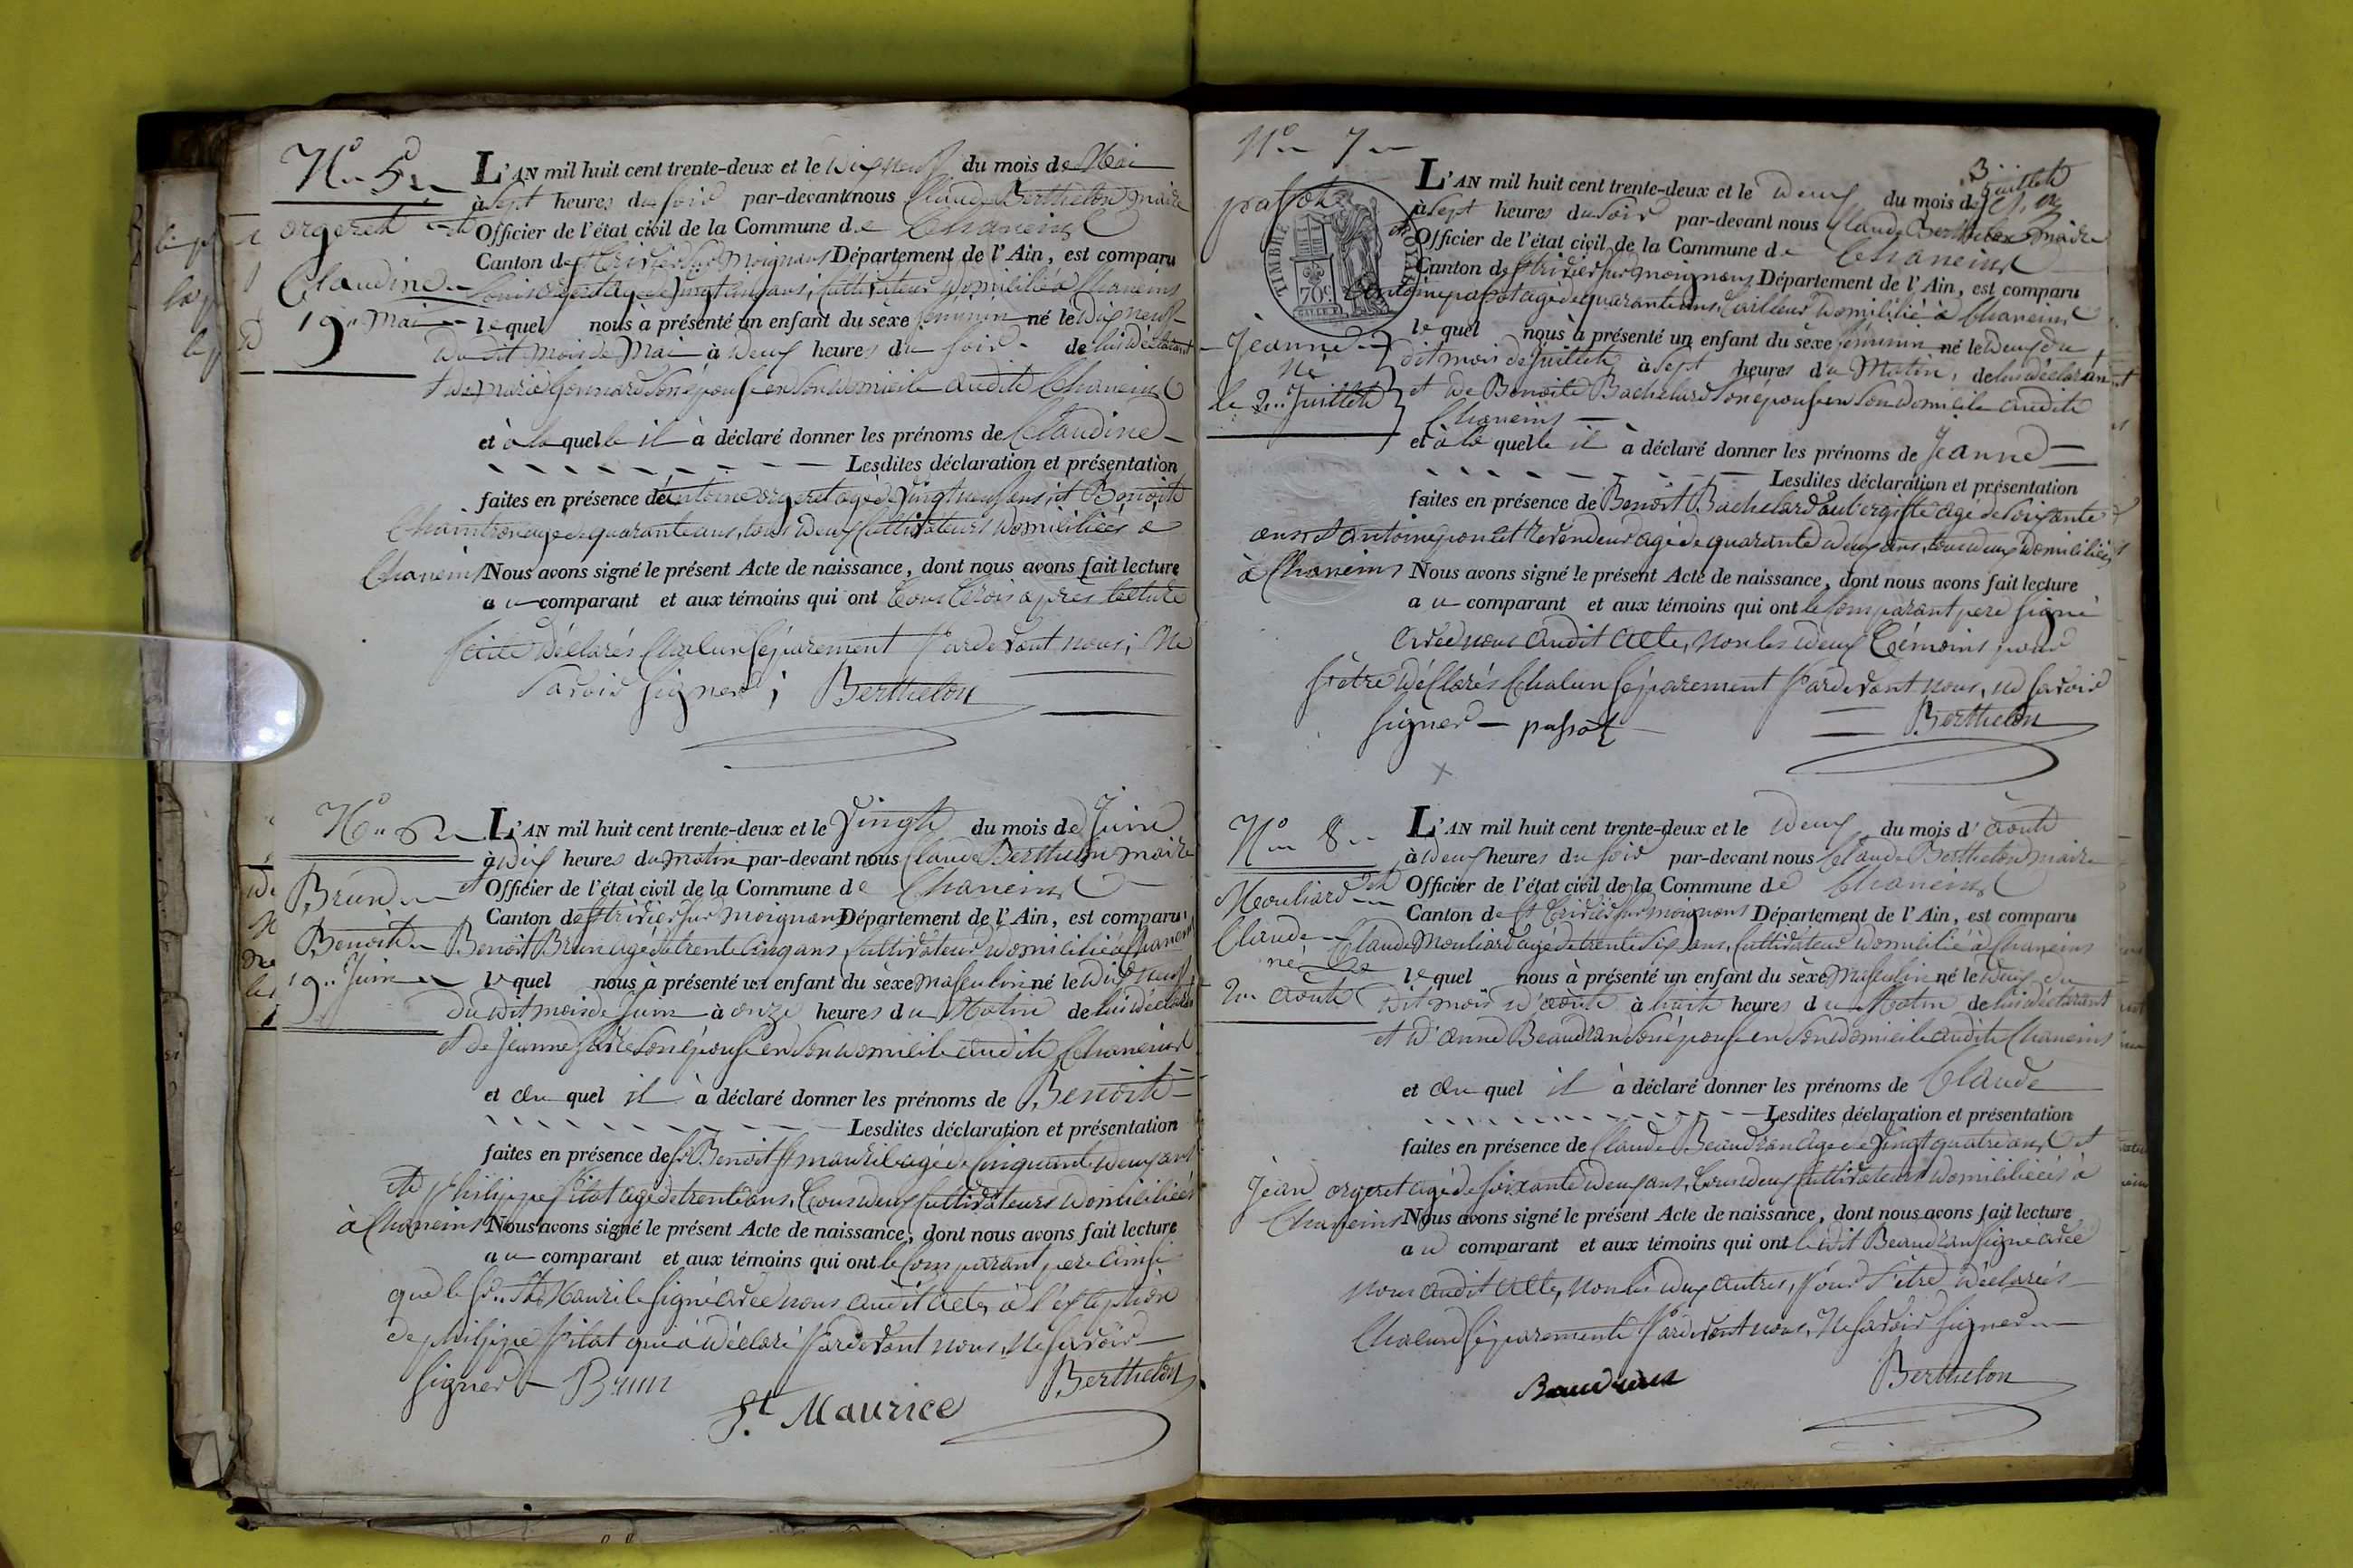 N° 5
orgeret
Claudine
19 Mai
L'AN mil huit cent trente-deux et le dix neuf du mois de Mai
à Sept heures du Soir par-devant nous Claude Berthelon maire
et Officier de l'état civil de la Commune de Chaneins
Canton de St Trivier Sur Moignans Département de l'Ain, est comparu
Louis orgeret agé de vingt cinq ans, Cultivateur domicilié à Chaneins
lequel nous à présenté un enfant du sèxe feminin né le dix neuf
du dit mois de Mai à deux heures du soir de lui déclarant
et de marie Gonnard son épouse en son domicile audit Chaneins
et à la quelle il à déclaré donner les prénoms de Claudine
Lesdites déclaration et présentation
faites en présence de antoine orgeret agé de vingt neuf ans, et Benoit
Chaintron agé de quarante ans, tous deux Cultivateurs domiciliés à
Chaneins Nous avons signé le présent Acte de naissance, dont nous avons fait lecture
au comparant et aux témoins qui ont tous trois après lecture
faite déclarés chacun séparement pardevant nous, ne
savoir signer ; Berthelon
N° 6
Brun
Benoit
19 Juin
L'AN mil huit cent trente-deux et le vingt du mois de Juin
à dix heures du matin par-devant nous Claude Berthelon maire
et Officier de l'état civil de la Commune de Chaneins
Canton de St trivier sur moignans Département de l'Ain, est comparu
Benoit Brun agé de trente cinq ans, Cultivateur domicilié à Chaneins
lequel nous à présenté un enfant du sèxe masculin né le dix neuf
du dit mois de Juin à onze heures du Matin de lui déclarant
et de Jeanne son épouse en son domicile audit Chaneins
et au quel il à déclaré donner les prénoms de Benoit
Lesdites déclaration et présentation
faites en présence de Sr Benoit St maurile agé de cinquante deux ans
et Philippe Pilat agé de trente ans, tous deux Cultivateurs domiciliés
à Chaneins Nous avons signé le présent Acte de naissance, dont nous avons fait lecture
au comparant et aux témoins qui ont le Comparant pere ainsi
que le Sr St Maurile signé avec nous audit acte, à l'exeption
de philippe Pilat qui à déclaré pardevant nous ne savoir
signer Brun Berthelon
St Maurice
N° 7
passot
Jeanne
né
le 2 Juillet
TIMBRE ROYAL
70 c
L'AN mil huit cent trente-deux et le deux du mois de Juillet
à Sept heures du soir par-devant nous Claude Berthelon maire
et Officier de l'état civil de la Commune de Chaneins
Canton de St trivier sur moignans Département de l'Ain, est comparu
antoine passot agé de quarante ans, tailleur domicilié à Chaneins
lequel nous à présenté un enfant du sèxe féminin né le deux du
dit mois de Juillet à Sept heures du Matin, de lui déclarant
et de Benoite Bachelard son épouse en son domicile audit
Chaneins
et à la quelle il à déclaré donner les prénoms de Jeanne
Lesdites déclaration et présentation
faites en présence de Benoit Bachelard aubergiste agé de soixante
ans, et antoine poncet revendeur agé de quarante deux ans, tous deux domiciliés
à Chaneins Nous avons signé le présent Acte de naissance, dont nous avons fait lecture
au comparant et aux témoins qui ont le comparant pere signé
avec nous audit acte, non les deux témoins pour
s'être déclarés chacun séparement pardevant nous, ne savoir
signer passot Berthelon
N° 8
Mouliard
Claude
né le
2 août
L'AN mil huit cent trente-deux et le deux du mois d'août
à deux heures du soir par-devant nous Claude Berthelon maire
et Officier de l'état civil de la Commune de Chaneins
Canton de St Trivier sur moignans Département de l'Ain, est comparu
Claude Mouliard agé de trente six ans, Cultivateur domicilié à Chaneins
lequel nous à présenté un enfant du sèxe Masculin né le deux du
dit mois d'août à huit heures du Matin de lui déclarant
et d'anne Beaudran son épouse en son domicile audit Chaneins
et au quel il à déclaré donner les prénoms de Claude
Lesdites déclaration et présentation
faites en présence de Claude Beaudran agé de vingt quatre ans, et
Jean orgeret agé de soixante deux ans, tous deux Cultivateurs domiciliés à
Chaneins Nous avons signé le présent Acte de naissance, dont nous avons fait lecture
au comparant et aux témoins qui ont ledit Beaudran signé avec
nous audit acte, non les deux autres, pour s'être déclarés
chacun séparement pardevant nous, ne savoir signer
Baudran Berthelon